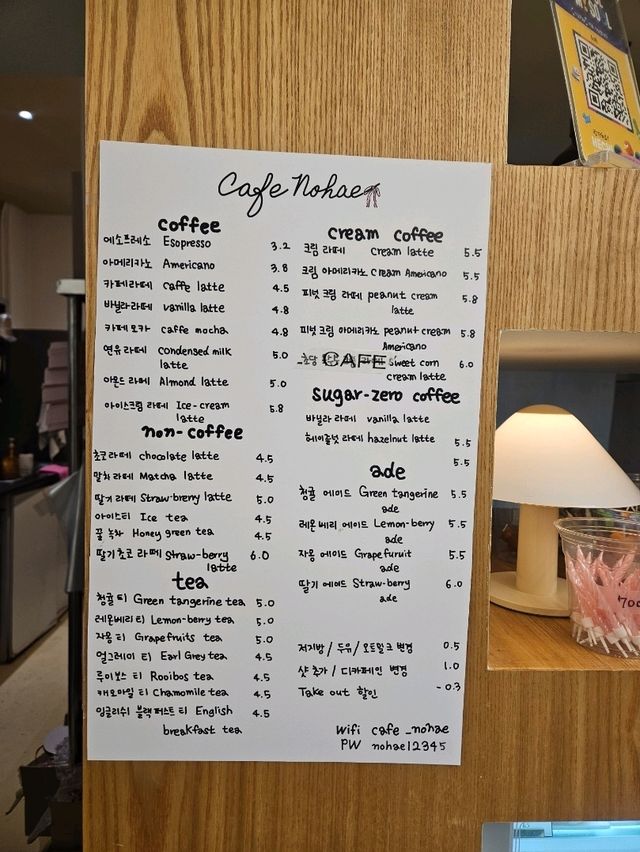 Cafe Nohae
coffee
에소프레소 Esopresso 3.2
아메리카노 Americano 3.8
카페라떼 caffe latte 4.5
바닐라라떼 vanilla latte 4.8
카페모카 caffe mocha 4.8
연유라떼 condensed milk latte 5.0
아몬드 라떼 Almond latte 5.0
아이스크림 라떼 Ice-cream latte 5.8
non-coffee
초코라떼 chocolate latte 4.5
말차라떼 Matcha latte 4.5
딸기라떼 Straw-breny latte 5.0
아이스티 Ice tea 4.5
꿀 녹차 Honey green tea 4.5
딸기초코 라떼 Straw-berry latte 6.0
tea
청귤 티 Green tangerine tea 5.0
레몬베리 티 Lemon-berry tea 5.0
자몽 티 Grapefruits tea 5.0
얼그레이 티 Earl Grey tea 4.5
루이보스 티 Rooibos tea 4.5
캐모마일 티 Chamomile tea 4.5
잉글리쉬 블랙퍼스트 티 English breakfast tea 4.5
cream coffee
크림 라떼 cream latte 5.5
크림 아메리카노 cream Americano 5.5
피넛 크림 라떼 peanut cream latte 5.8
피넛 크림 아메리카노 peanut cream Americano 5.8
CAFE
sweet corn cream latte 6.0
sugar-zero coffee
바닐라 라떼 vanilla latte
헤이즐넛 라떼 hazelnut latte 5.5
5.5
ade
청귤 에이드 Green tangerine ade 5.5
레몬베리 에이드 Lemon-berry ade 5.5
자몽 에이드 Grapefuruit ade 5.5
딸기 에이드 Straw-berry ade 6.0
저지방 / 두유 / 오트밀크 변경 0.5
샷 추가 / 디카페인 변경 1.0
Take out 할인 -0.3
wifi cafe _nohae
PW nohae12345